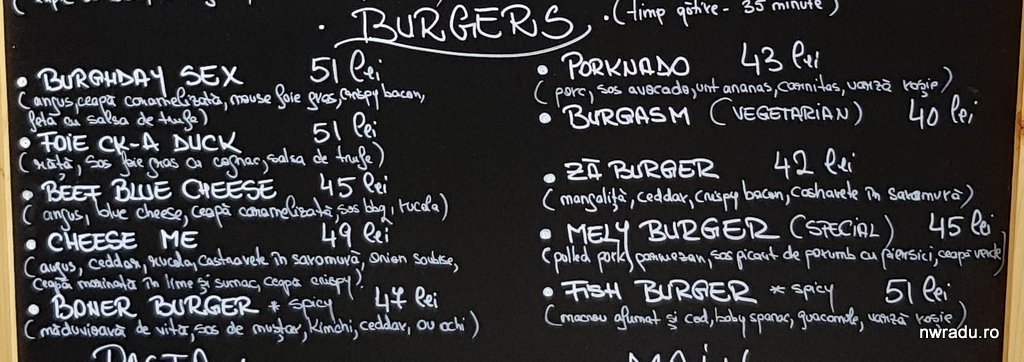 BURGERS . (timp gătire - 35 minute)
• BURGHDAY SEX 51 lei
(angus, ceapă caramelizată, mouse foie gras, crispy bacon,
feta cu salsa de trufe)
• FOIE CK-A DUCK 51 lei
(rață, sos foie gras cu cognac, salsa de trufe)
• BEEF BLUE CHEESE 45 lei
(angus, blue cheese, ceapă caramelizată, sos bbq, rucola)
• CHEESE ME 49 lei
(angus, ceddar, rucola, castravete în saramură, onion soubise,
ceapă marinată în lime și sumac, ceapă crispy)
• BONER BURGER * SPICY 47 lei
(măduvioară de vită, sos de muștar, kimchi, ceddar, ou ochi)
• PORKNADO 43 lei
(porc, sos avocado, unt ananas, carnitas, varză roșie)
• BURGASM (VEGETARIAN) 40 lei
• ZĂ BURGER 42 lei
(mangaliță, ceddar, crispy bacon, castravete în saramură)
• MELY BURGER (SPECIAL) 45 lei
(pulled pork, parmezan, sos picant de porumb cu piersici, ceapă verde)
• FISH BURGER * SPICY 51 lei
(macrou afumat și cod, baby spanac, guacamole, varză roșie)
nwradu.ro